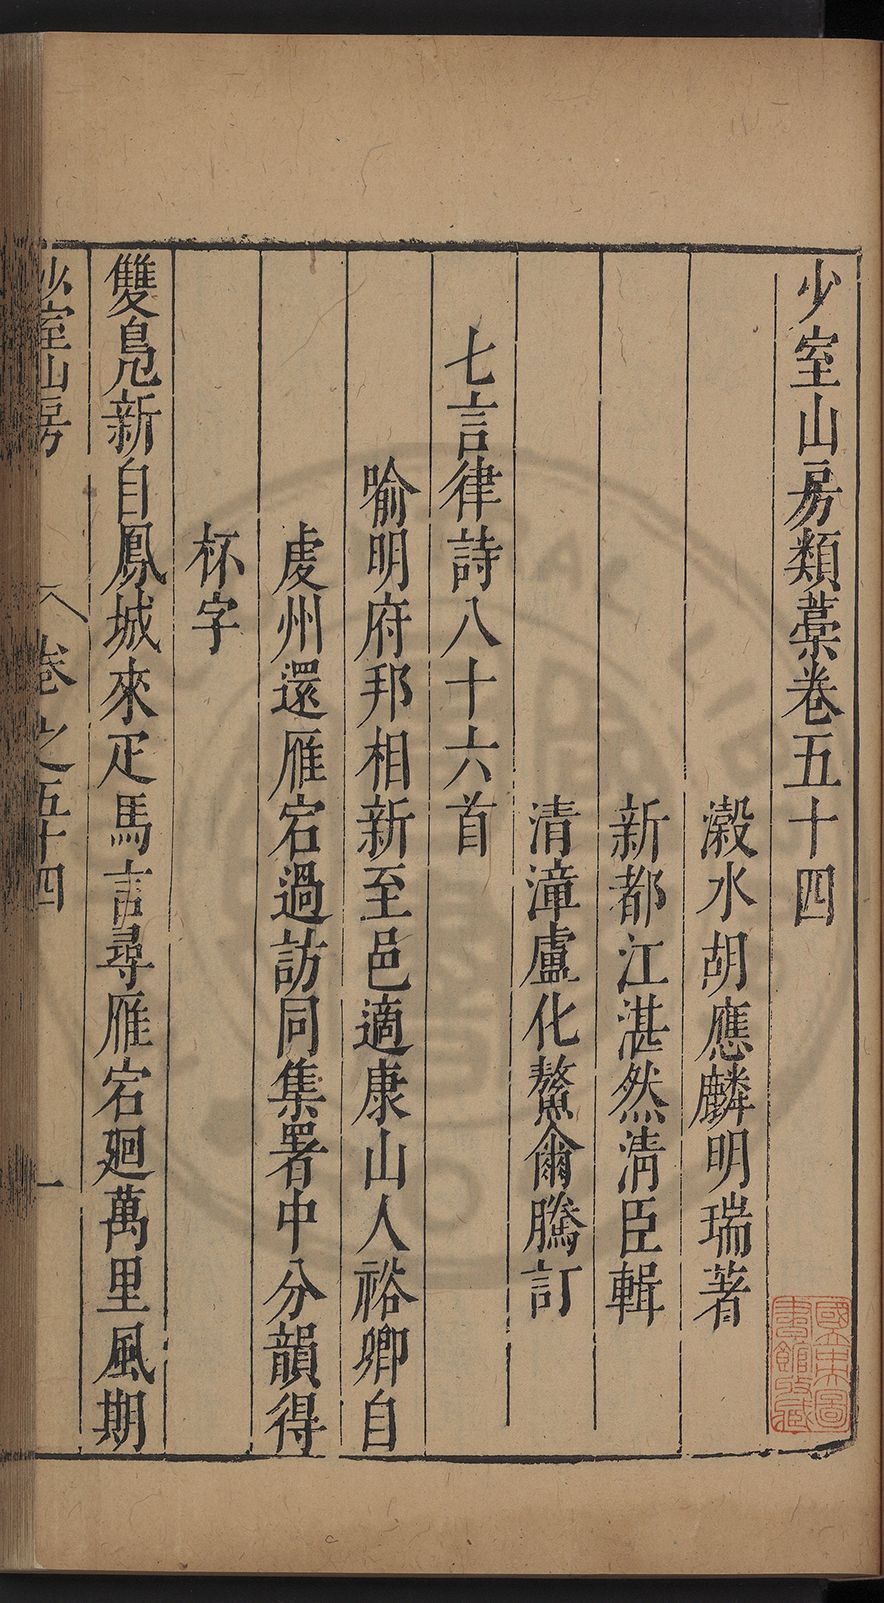 少室山房類藁卷五十四
瀫水胡應麟明瑞著
新都江湛然淸臣輯
清漳盧化鰲爾騰訂
七言律詩八十六首
喻明府邦相新至邑適康山人裕卿自
處州還雁宕過訪同集署中分韻得
杯字
雙鳧新自鳳城來疋馬言尋雁宕廻萬里風期
少室山房 卷之五十四 一
國立東
書館收藏